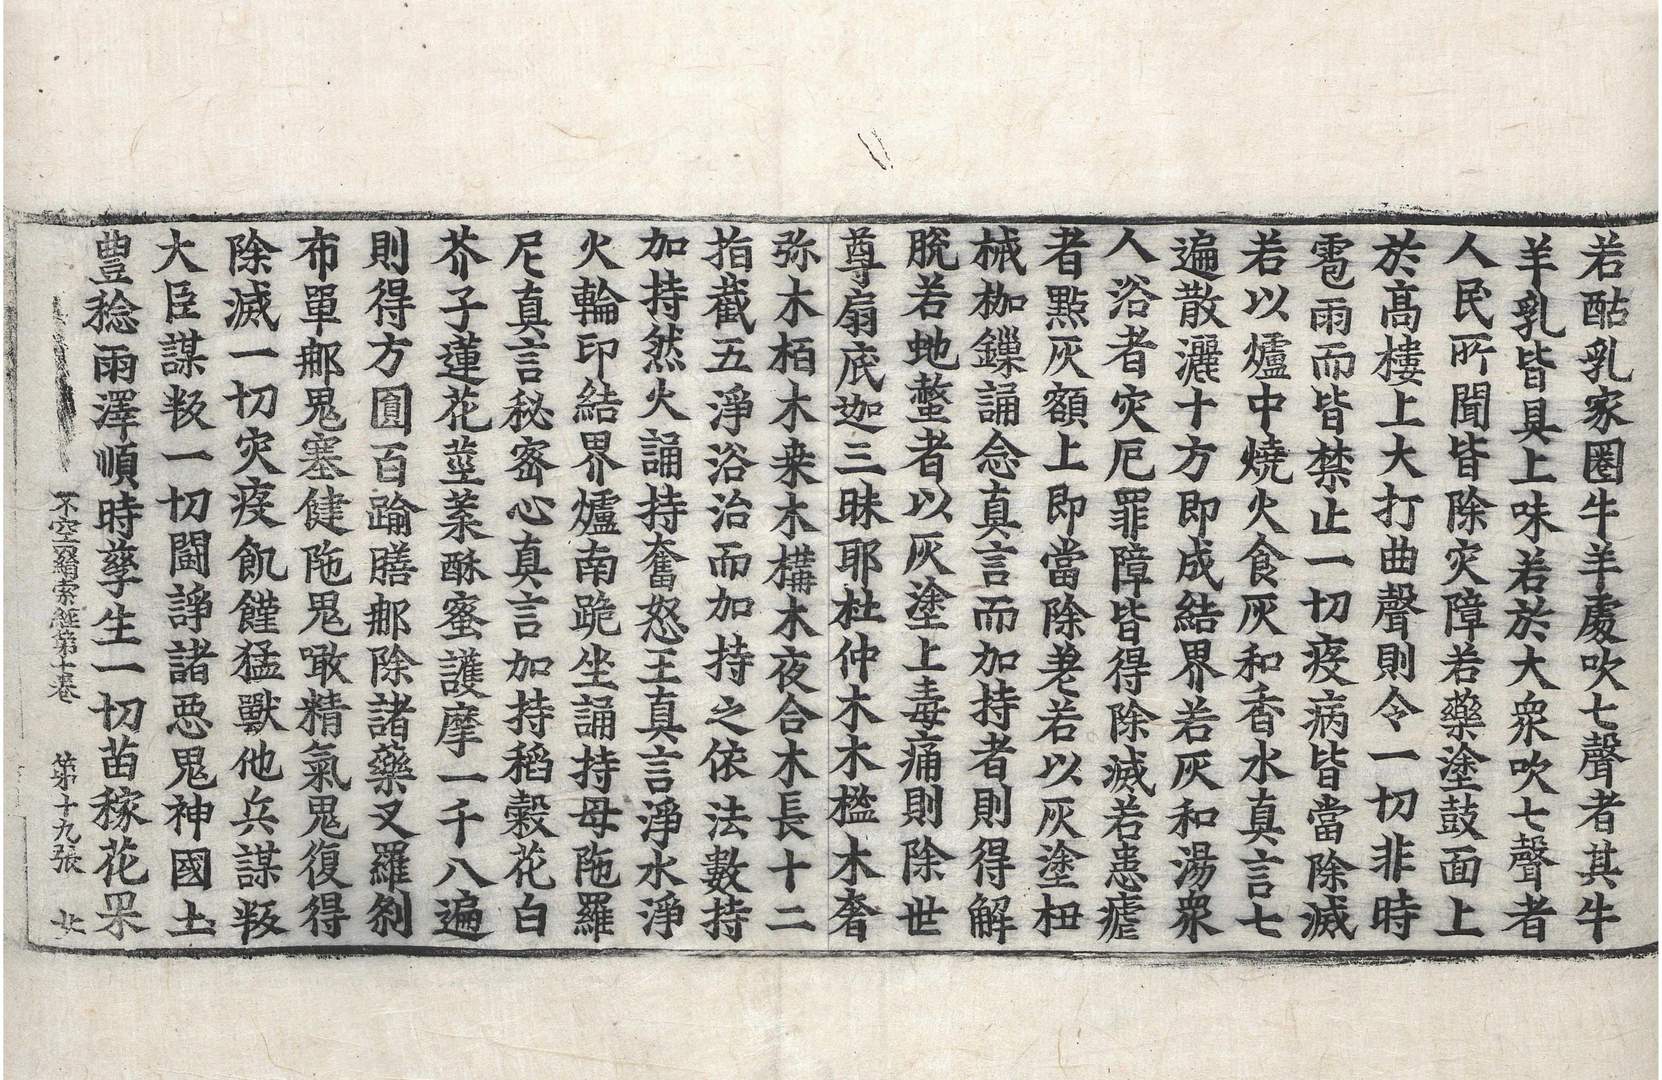 若酤乳家圈牛羊處吹七聲者其牛
羊乳皆具上味若於大衆吹七聲者
人民所聞皆除灾障若藥塗鼓面上
於高樓上大打曲聲則令一切非時
雹雨而皆禁止一切疫病皆當除滅
若以爐中燒火食灰和香水真言七
遍散灑十方即成結界若灰和湯衆
人浴者灾厄罪障皆得除滅若患瘧
者點灰額上即當除差若以灰塗杻
械枷鏁誦念真言而加持者則得解
脫若虵螫者以灰塗上毒痛則除世
尊扇底迦三昧耶杜仲木木檻木奢
弥木栢木桒木構木夜合木長十二
指截五淨浴治而加持之依法數持
加持然火誦持奮怒王真言淨水淨
火輪印結界爐南跪坐誦持母陁羅
尼真言秘密心真言加持稻穀花白
芥子蓮花莖葉酥蜜護摩一千八遍
則得方圓百踰膳那除諸藥叉羅刹
布單那鬼塞健陁鬼噉精氣鬼復得
除滅一切灾疫飢饉猛獸他兵謀叛
大臣謀叛一切鬪諍諸惡鬼神國土
豊稔雨澤順時孳生一切苗稼花果
不空羂索經第十卷 第十九張